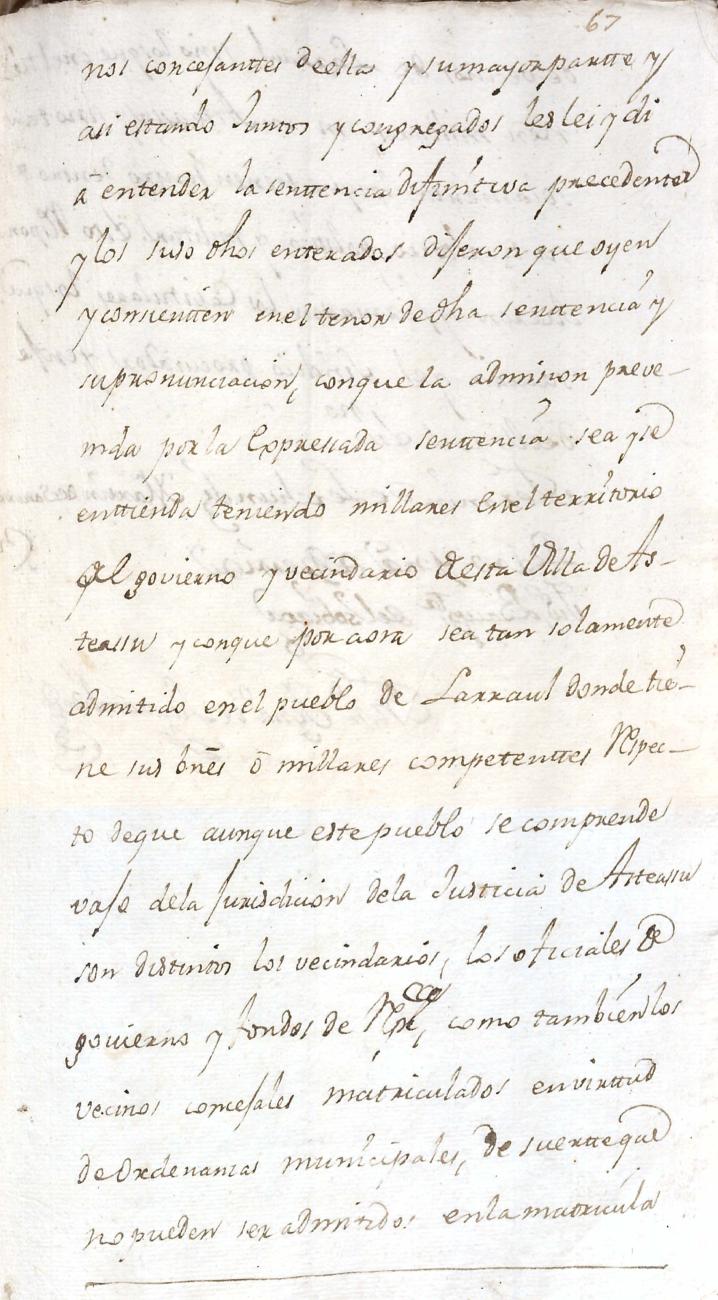 67
nos concejanttes de ellas y su mayor partte y
asi estando Juntos y congregados les lei y di
a entender la senttencia difinitiva precedente
y los suso dhos enterados dijeron que oyen
y consientten en el tenor de dha senttencia y
su pronunciacion, con que la admision preve-
nida por la Expressada senttencia sea y se
enttienda teniendo millares en el territorio
del govierno y vecindario de esta Villa de As-
teassu y con que por aora sea tan solamente
admitido en el pueblo de Larraul donde tie-
ne sus bnes o millares competenttes Respec-
to de que aunque este pueblo se comprende
vajo de la Jurisdicion de la Justicia de Asteassu
son distintos los vecindarios, los oficiales de
govierno y fondos de Repca, como tambien los
vecinos concejales matriculados en virttud
de Ordenanzas municipales, de suertte que
no pueden ser admitidos en la matricula